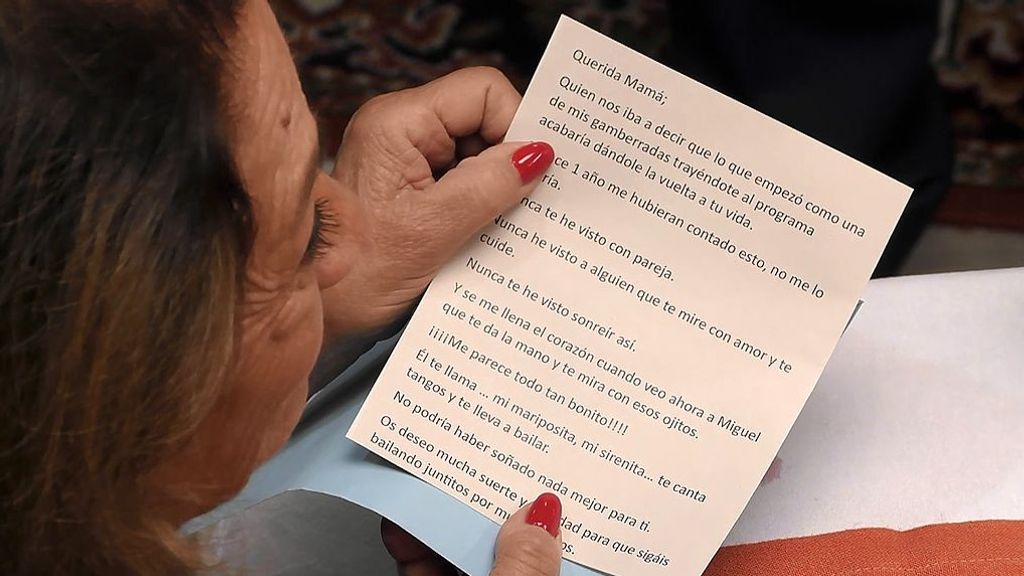 Querida Mamá;
Quien nos iba a decir que lo que empezó como una
de mis gamberradas trayéndote al programa
acabaría dándole la vuelta a tu vida.
ce 1 año me hubieran contado esto, no me lo
ría.
nca te he visto con pareja.
Nunca he visto a alguien que te mire con amor y te
cuide.
Nunca te he visto sonreír así.
Y se me llena el corazón cuando veo ahora a Miguel
que te da la mano y te mira con esos ojitos.
¡¡¡¡Me parece todo tan bonito!!!!
El te llama ... mi mariposita, mi sirenita... te canta
tangos y te lleva a bailar.
No podría haber soñado nada mejor para ti.
Os deseo mucha suerte y dad para que sigáis
bailando juntitos por mu os.